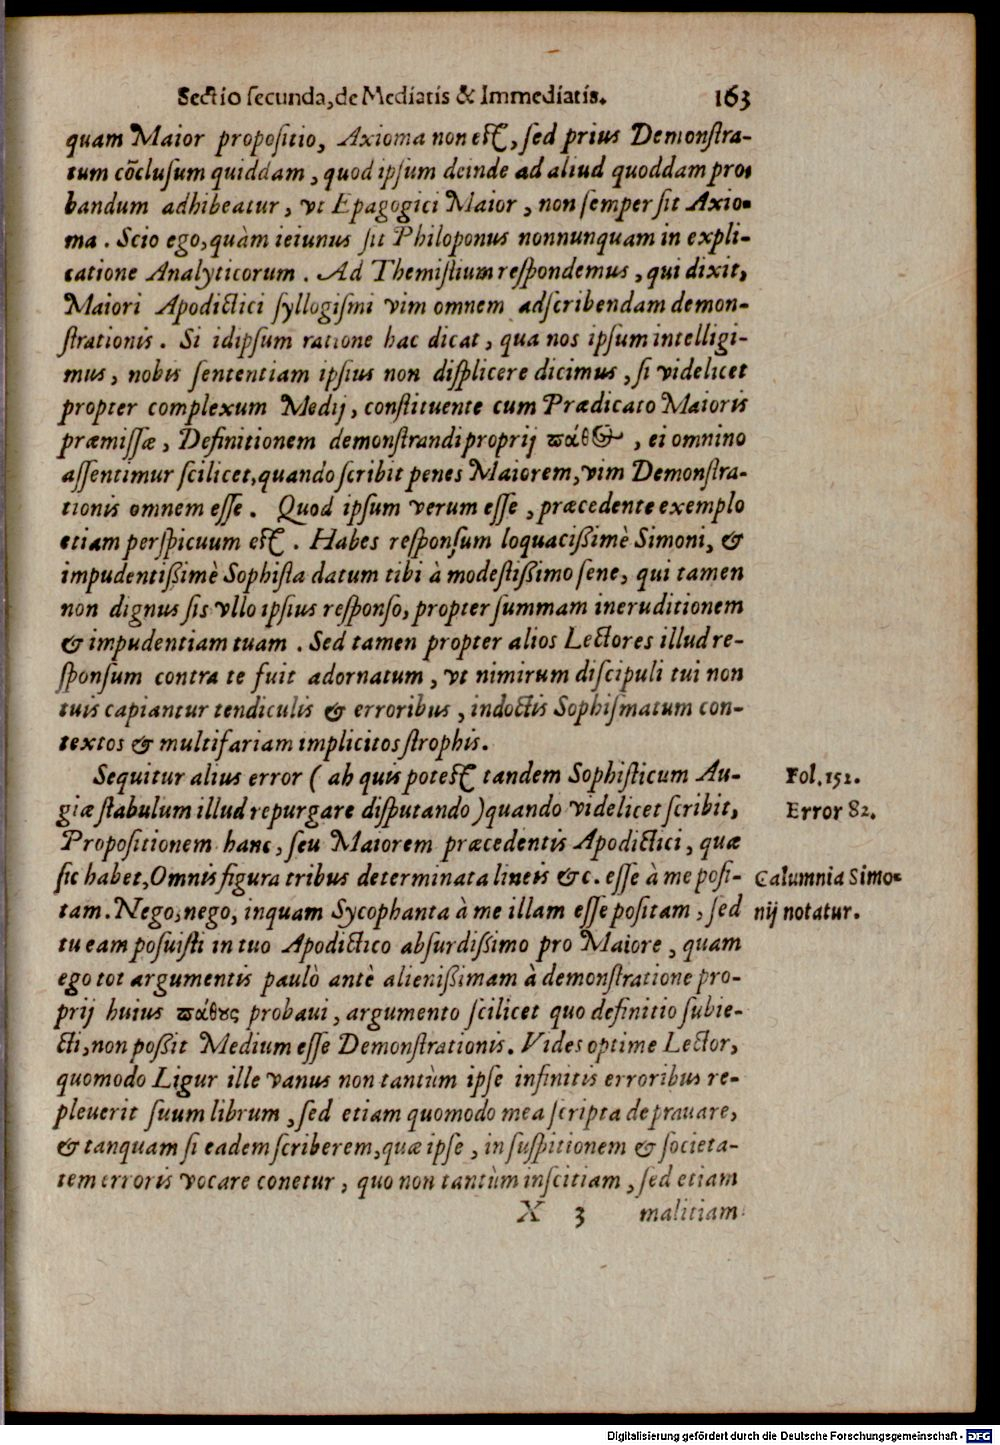 Sectio secunda, de Mediatis & Immediatis. 163
quam Maior propositio, Axioma non est, sed prius Demonstra-
tum cõclusum quiddam, quod ipsum deinde ad aliud quoddam pro-
bandum adhibeatur, vt Epagogici Maior, non semper sit Axio-
ma. Scio ego, quàm ieiunus sit Philoponus nonnunquam in expli-
catione Analyticorum. Ad Themistium respondemus, qui dixit,
Maiori Apodictici syllogismi vim omnem adscribendam demon-
strationis. Si idipsum ratione hac dicat, qua nos ipsum intelligi-
mus, nobis sententiam ipsius non displicere dicimus, si videlicet
propter complexum Medij, constituente cum Prædicato Maioris
præmissæ, Definitionem demonstrandi proprij πάθος, ei omnino
assentimur scilicet, quando scribit penes Maiorem, vim Demonstra-
tionis omnem esse. Quod ipsum verum esse, præcedente exemplo
etiam perspicuum est. Habes responsum loquacißimè Simoni, &
impudentißimè Sophista datum tibi à modestißimo sene, qui tamen
non dignus sis vllo ipsius responso, propter summam ineruditionem
& impudentiam tuam. Sed tamen propter alios Lectores illud re-
sponsum contra te fuit adornatum, vt nimirum discipuli tui non
tuis capiantur tendiculis & erroribus, indoctis Sophismatum con-
textos & multifariam implicitos strophis.
Sequitur alius error (ah quis potest tandem Sophisticum Au-
giæ stabulum illud repurgare disputando) quando videlicet scribit,
Propositionem hanc, seu Maiorem præcedentis Apodictici, quæ
sic habet, Omnis figura tribus determinata lineis &c. esse à me posi-
tam. Nego, nego, inquam Sycophanta à me illam esse positam, sed
tu eam posuisti in tuo Apodictico absurdißimo pro Maiore, quam
ego tot argumentis paulò antè alienißimam à demonstratione pro-
prij huius πάθους probaui, argumento scilicet quo definitio subie-
cti, non poßit Medium esse Demonstrationis. Vides optime Lector,
quomodo Ligur ille vanus non tantùm ipse infinitis erroribus re-
pleuerit suum librum, sed etiam quomodo mea scripta deprauare,
& tanquam si eadem scriberem, quæ ipse, in suspitionem & societa-
tem erroris vocare conetur, quo non tantùm inscitiam, sed etiam
X 3 malitiam
Fol. 152.
Error 82.
Calumnia Simo-
nij notatur.
Digitalisierung gefördert durch die Deutsche Forschungsgemeinschaft - DFG